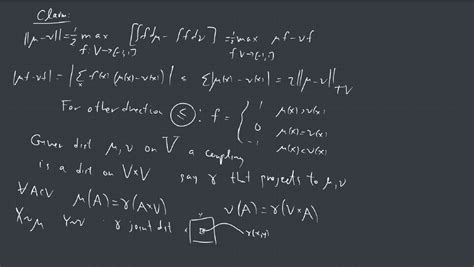 Claim:
||μ-ν|| = 1/2 max f:V→[-1,1] [∫fdμ - ∫fdν] = 1/2 max f:V→[-1,1] μf-νf
|μf-νf| = |Σ_x f(x)(μ(x)-ν(x))| ≤ Σ|μ(x)-ν(x)| = 2||μ-ν||_TV
For other direction ≤ : f = { 1 μ(x)>ν(x)
0 μ(x)=ν(x)
-1 μ(x)<ν(x)
Given dist μ,ν on V a coupling
is a dist on V×V say γ that projects to μ,ν
∀A⊂V μ(A)=γ(A×V) ν(A)=γ(V×A)
X~μ Y~ν γ joint dist x Y γ(x,y)